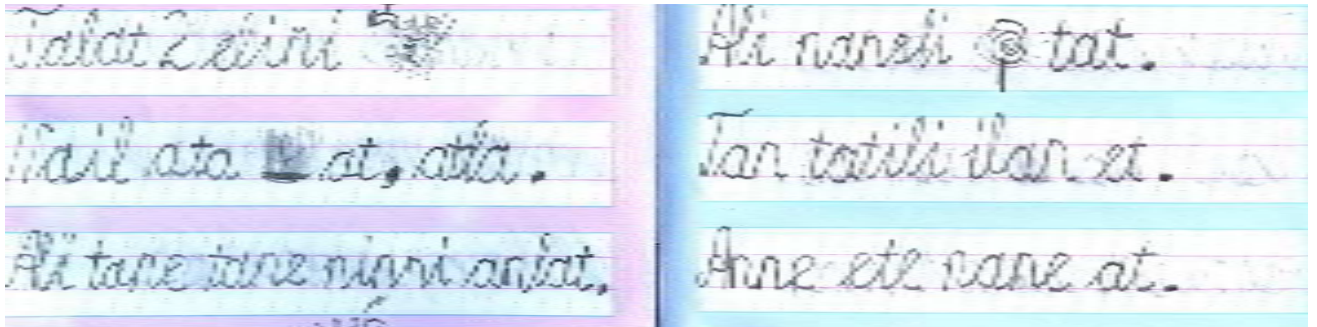 Talat 2 elini
Nail ata at, atla.
Ali tane tane ninni anlat.
Ali naneli tat.
Tan tatili ilan et.
Anne ete nane at.